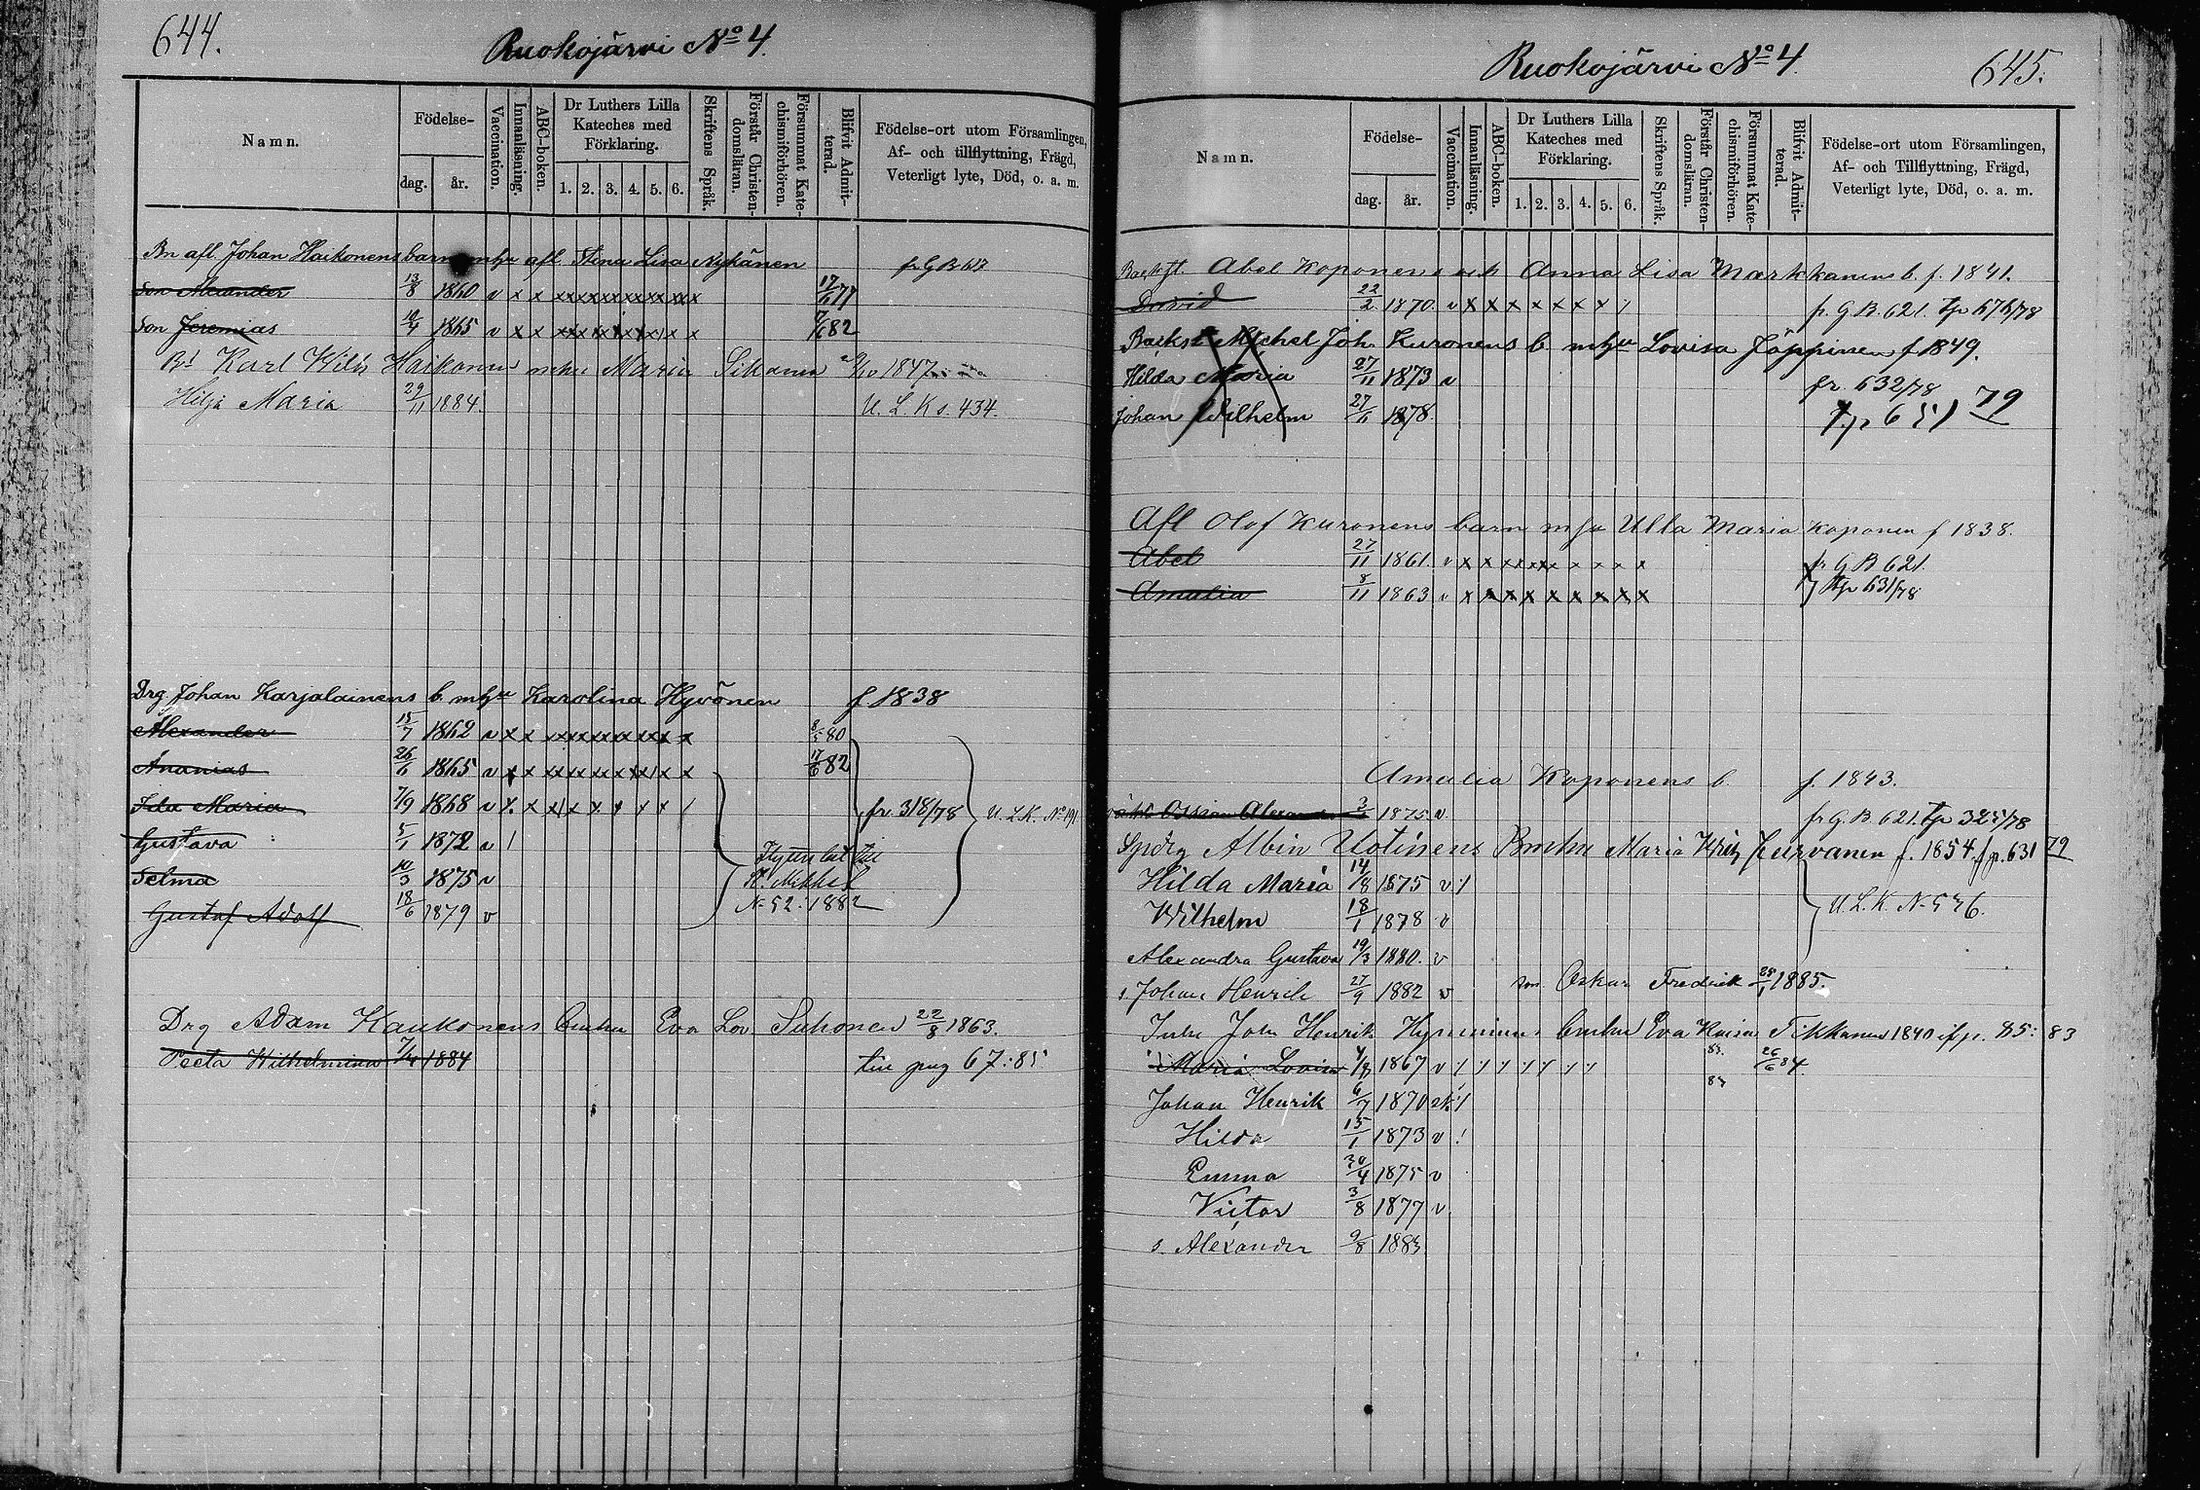 644.
Ruokojärvi No 4.
Namn.
Födelse-
dag.
år.
Vaccination.
Innanläsning.
ABC-boken.
Dr Luthers Lilla
Kateches med
Förklaring.
1. 2. 3. 4. 5. 6.
Skriftens Språk.
Förstår Christen-
domsläran.
Försummat Kate-
chismiförhören.
Blifvit Admit-
terad.
Födelse-ort utom Församlingen,
Af- och tillflyttning, Frägd,
Veterligt lyte, Död, o. a. m.
Bn afl. Johan Haikonens barn mhu afl. Stina Lisa Nykänen fr G B 617
Son Alexander 13/8 1860 v x x xxxxxxxxxxxx 17/6 77
Son Jeremias 10/4 1865 v x x xxxxxxxx x x 82
Karl Wilh Haikonens mhu Maria 1847
Hilja Maria 29/11 1884. U. L. K s. 434.
Drg Johan Karjalainens b. mhu Karolina Hyvönen f 1838
Alexander 15/7 1862 v x x xxxxxxxx x x 8/5 80
Ananias 26/6 1865 v x x xxxxxxxx x x 17/6 82
Ida Maria 7/9 1868 v x. x x x x x x x / fr. 318/78 U. L. K. No 191
Gustava 5/1 1872 v /
Selma 10/3 1875 v St. Mikkel
Gustaf Adolf 18/6 1879 v N. 52. 1882
Drg Adam Kaukonens bmhu Eva Lov. Suhonen 22/8 1863.
Wilhelmina 1884 67: 85
645.
Ruokojärvi No 4.
Namn.
Födelse-
dag.
år.
Vaccination.
Innanläsning.
ABC-boken.
Dr Luthers Lilla
Kateches med
Förklaring.
1. 2. 3. 4. 5. 6.
Skriftens Språk.
Förstår Christen-
domsläran.
Försummat Kate-
chismiförhören.
Blifvit Admit-
terad.
Födelse-ort utom Församlingen,
Af- och Tillflyttning, Frägd,
Veterligt lyte, Död, o. a. m.
Abel Koponens och Anna Lisa Markkanens b. f. 1841.
David 22/2 1870. v x x x x x x x / fr. G. B. 621. tp 676/78
Backst Michel Joh. Kuronens b mhu Lovisa Jäppinen f 1849.
Hilda Maria 27/11 1873 v fr. 632/78
Johan Wilhelm 27/6 1878. 79
Afl Olof Kuronens barn mhu Ulla Maria Koponen f 1838.
Abel 27/11 1861. v x x x x x x x x x x fr G B 621.
Amalia 8/11 1863 v x x x x x x x x x tp 631/78
Amalia Koponens b. f. 1843.
Ossian Alexander 1875. v fr G. B. 621. tp 325/78
Spdrg Albin Uotinens Bmhu Maria Kurvanen f. 1854. fr. 631 79
Hilda Maria 14/8 1875 v / U. L. K. N. 536.
Wilhelm 18/1 1878 v
Alexandra Gustava 19/3 1880. v
s. Johan Henrik 27/9 1882 v son Oskar Fredrik 28/1 1885.
Inh. Joh Henrik bmhu Eva Kaisa Tikkanen 1840 85: 83
Maria Lovisa 1867 v 83. 26/6 84
Johan Henrik 6/7 1870 83
Hilda 15/1 1873 v !
Emma 30/4 1875 v
Victor 3/8 1877 v
s. Alexander 9/8 1883.